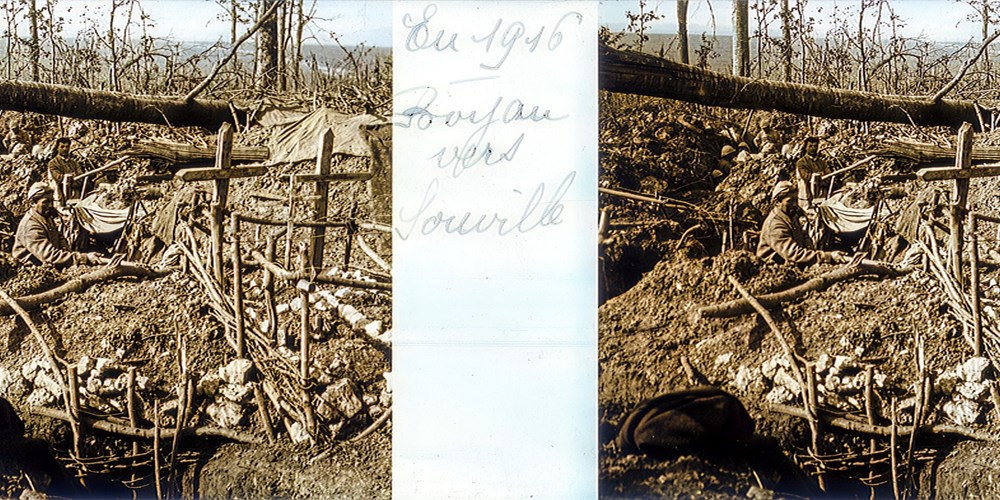 En 1916
Boyau
vers
Souville